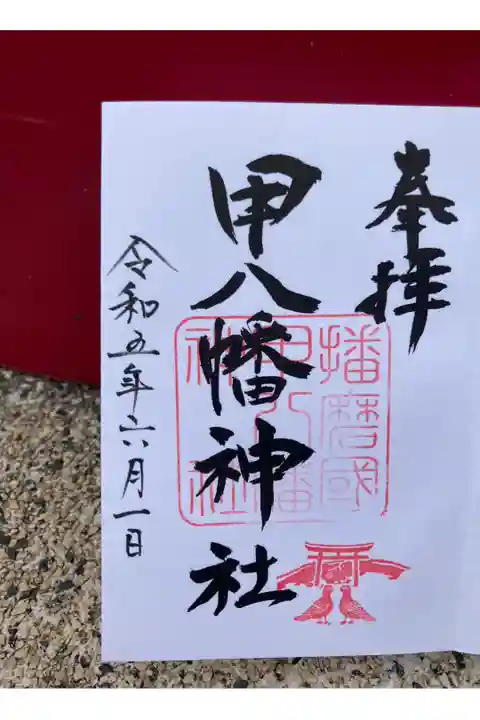 奉拝
甲八幡神社
播磨國
甲八幡
神社
令和五年六月一日